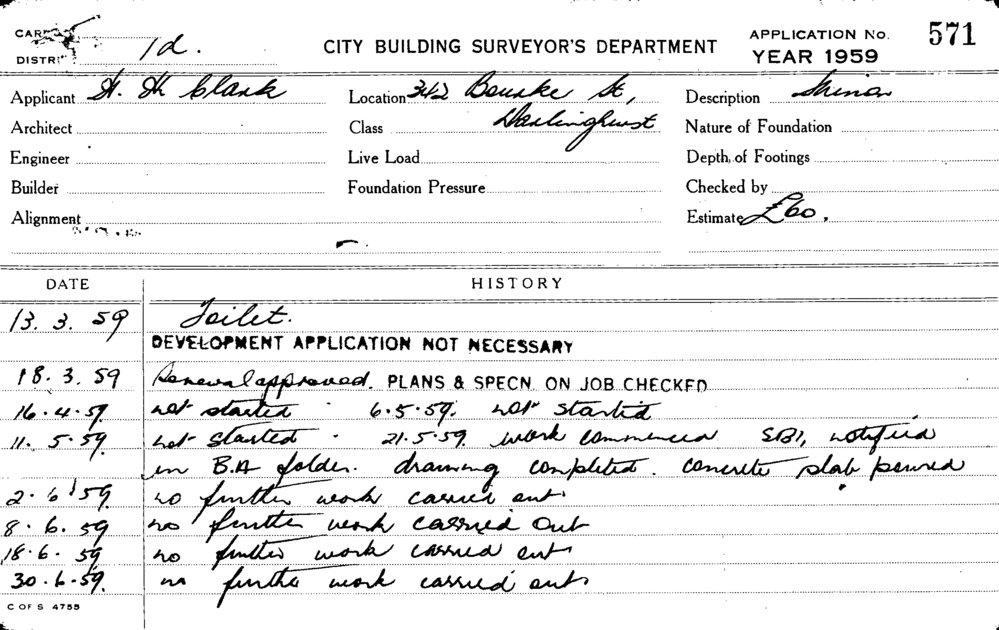 CARD
DISTRI 1d. CITY BUILDING SURVEYOR'S DEPARTMENT APPLICATION No. 571
YEAR 1959
Applicant H. H. Clark Location 342 Bourke St, Description Minor
Architect Class Darlinghurst Nature of Foundation
Engineer Live Load Depth of Footings
Builder Foundation Pressure Checked by
Alignment Estimate £60.
DATE HISTORY
13. 3. 59 Toilet.
DEVELOPMENT APPLICATION NOT NECESSARY
18. 3. 59 Renewal approved. PLANS & SPECN. ON JOB CHECKED
16. 4. 59 not started 6.5.59. not started
11. 5. 59. not started 21.5.59. work commenced SBI, notified
in B.A folder. drawing completed. concrete slab poured
2. 6. 59. no further work carried out
8. 6. 59 no further work carried out
18. 6. 59 no further work carried out
30. 6. 59. no further work carried out
C OF S 4755